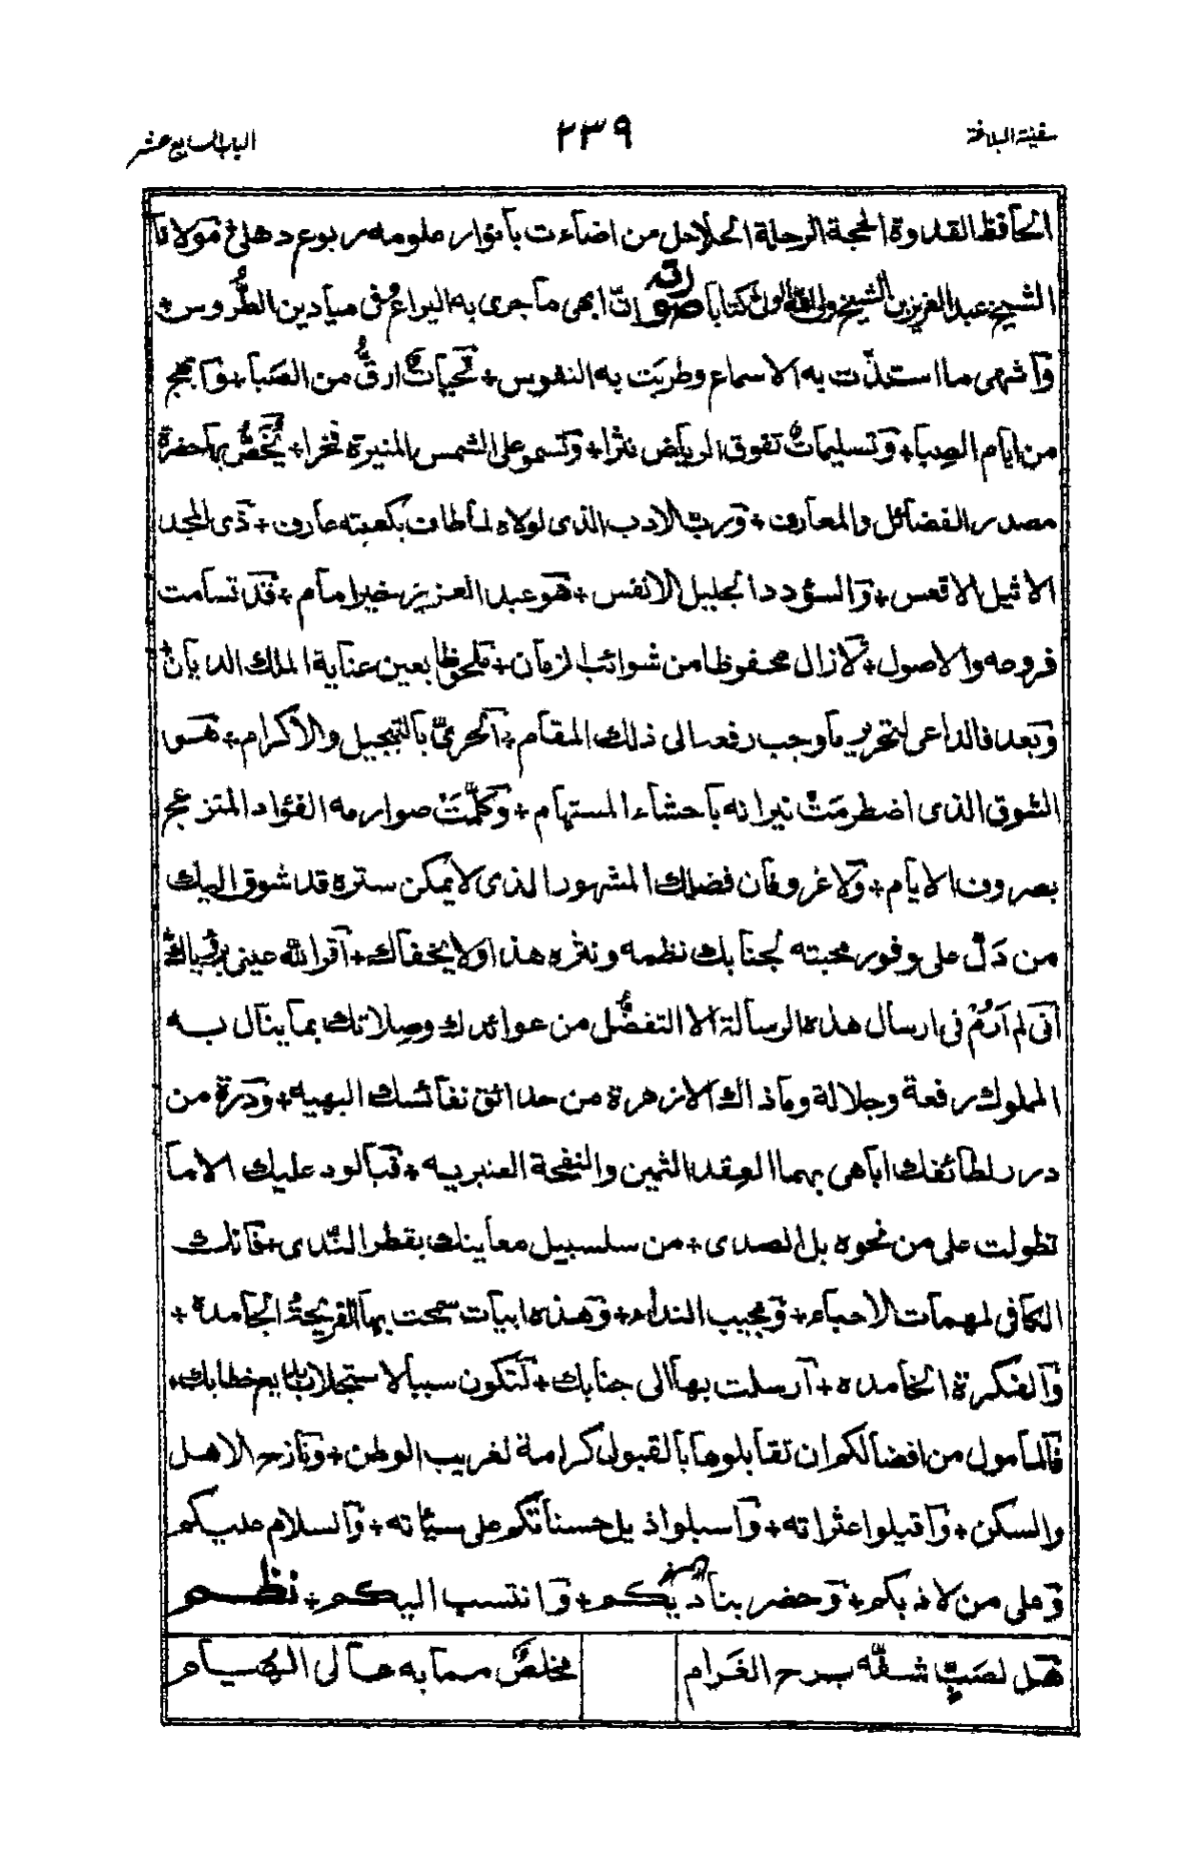 سفينة البلاغة
٢٣٩
الباب السابع عشر
الحافظ القدوة الحجة الرحلة الحلاحل من اضاءت بأنوار علومه ربوع دهلى مولانا
الشيخ عبد العزيز بن الشيخ ولى الله الدهلوى كتابا صورته انّ ابهى ما جرى به اليراعُ فى ميادين الطُّروس +
وأشهى ما استلذّت به الاسماع وطربت به النفوس + تحياتٌ ارقُّ من الصَبا + وابهج
من ايام الصِبا + وتسليماتٌ تفوق الرياض نثرا + وتسمو على الشمس المنيرة فخرا + يُخَصُّ بها حضرة
مصدر الفضائل والمعارف + وربّ الادب الذى لولاه لما طاف بكعبته عارف + ذى المجد
الاثيل الاقعس + والسؤدد الجليل الانفس + هو عبد العزيز خير امام + قد تسامت
فروعه والاصول + لا زال محفوظا من شوائب الزمان + ملحوظا بعين عناية الملك الديان +
وبعد فالداعى لتحرير ما وجب رفعه الى ذلك المقام + الحرىّ بالتبجيل والاكرام + هو
الشوق الذى اضطرمَتْ نيرانه بأحشاء المستهام + وكلَّمَتْ صوارمه الفؤاد المنزعج
بصروف الايام + ولا غرو فان فضلك المشهور الذى لا يمكن ستره قد شوق اليك
من دَلّ على وفور محبته لجنابك نظمه ونثره هذا ولا يخفاك + أقر الله عينى برؤياك +
أنى لم اَرُمْ فى ارسال هذه الرسالة الا التفضُّل من عوائدك وصِلاتك بما ينال به
الملوك رفعة وجلالة وما ذاك الا زهرة من حدائق نفائسك البهيه + ودرة من
درر لطائفك اباهى بهما العِقد الثمين والنفحة العنبريه + فبالود عليك الا ما
تطولت على من نحوه بل الصدى + من سلسبيل معاينك بقطر النّدى + فانك
الكافى لمهمات الاحباء + ومجيب النداء + وهذه ابيات سمحت بها القريحةُ الجامده +
والفكرة الخامده + أرسلت بها الى جنابك + لتكون سببا لاستجلاب بديع خطابك +
فالمأمول من افضالكم ان تقابلوها بالقبول كرامة لغريب الوطن + ونازح الاهل
والسكن + واقيلوا عثراته + واسبلوا ذيل حسناتكم على سيئاته + والسلام عليكم
وعلى من لاذ بكم + وحضر بناديكم + وانتسب اليكم + نظم
هل لصَبٍّ شفّه برح الغَرام
مخلصٌ مما به حالى الهيام